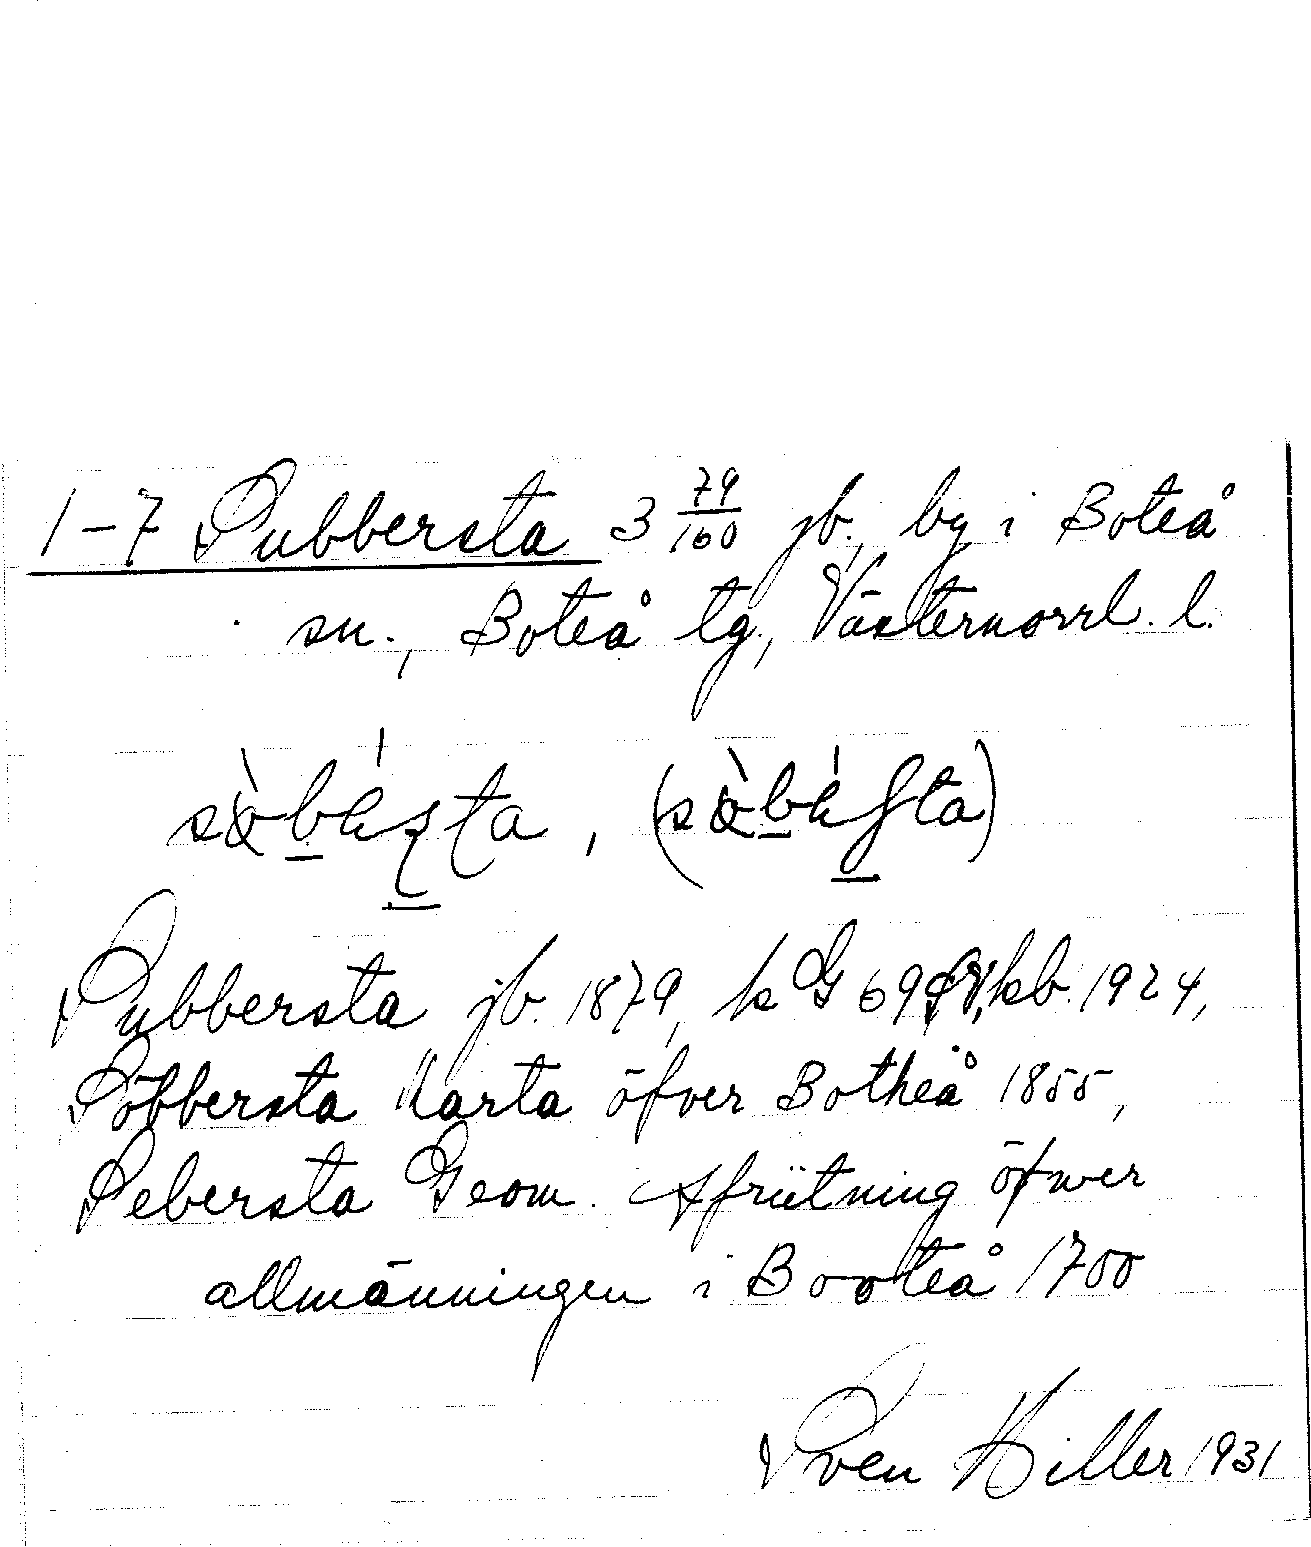 1-7 Subbersta 3 79/160 jb., by i Boteå
sn., Boteå tg., Västernorrl. l.
Subbersta jb. 1879, k G 69 kb. 1924,
Söbbersta Karta öfver Botheå 1855,
Sebersta Geom. Afriitning öfwer
allmänningen i Booteå 1700
Sven Hiller 1931